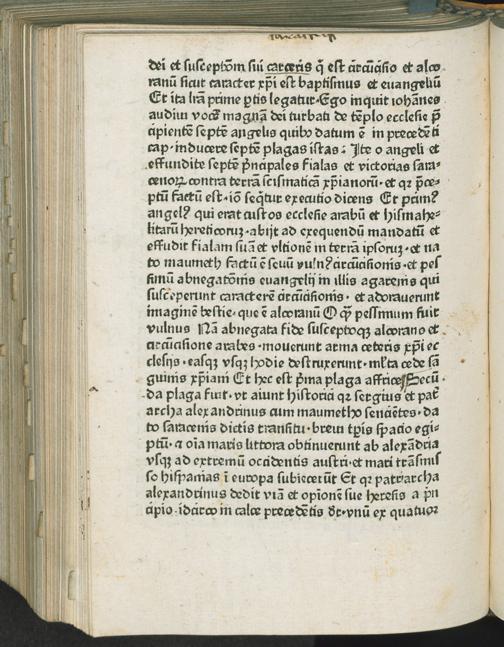 dei et susceptōm sui carceris q̄ est circūcisio et alco
ranū sicut caracter xp̄i est baptismus et euangeliū
Et ita lr̄am prime ꝑtis legatur · Ego inquit iohānes
audiui vocē magnā dei turbati de tēplo ecclesie p̄
cipientē septē angelis quibꝰ datum ē in precedēti
cap · inducere septē plagas istas : Ite o angeli et
effundite septē p̄ncipales fialas et victorias sara-
cenoꝝ contra terrā scismaticā xp̄ianorū · et qꝛ p̄ce-
ptū factū est · iō seq̄tur executio dicens Et prim9
angel9 qui erat custos ecclesie arabū et hismahe-
litarū hereticoruꝫ · abijt ad exequendū mandatū et
effudit fialam suā et vltionē in terrā ipsoruꝫ · et na
to maumeth factū ē seuū vuln9 circūcisionis · et pes
simū abnegatōnis euangelij in illis agarenis qui
susceperunt caracterē circūcisionis · et adorauerunt
imaginē bestie · que ē alcoranū O q̄ pessimum fuit
vulnus Nā abnegata fide susceptoqꝫ alcorano et
circūcisione arabes · mouerunt arma ceteris xp̄i ec
clesijs · easqꝫ vsqꝫ hodie destruxerunt · ml̄ta cede sā
guinis xp̄iani Et hec est p̄ma plaga affrice Secū-
da plaga fuit · vt aiunt historici qꝛ sergius et pat͛
archa alexandrinus cum maumetho sencietes · da
to saracenis dictis transitu · breui tp̄is spacio egi-
ptū · ⁊ oīa maris littora obtinuerunt ab alexādria
vsqꝫ ad extremū occidentis austri · et mari trāsmis
so hispanias ī europa subiecerūt Et qꝛ patriarcha
alexandrinus dedit viā et opionē sue heresis a p̄n
cipio · idcirco in calce precedētis dr̄ · vnū ex quatuor